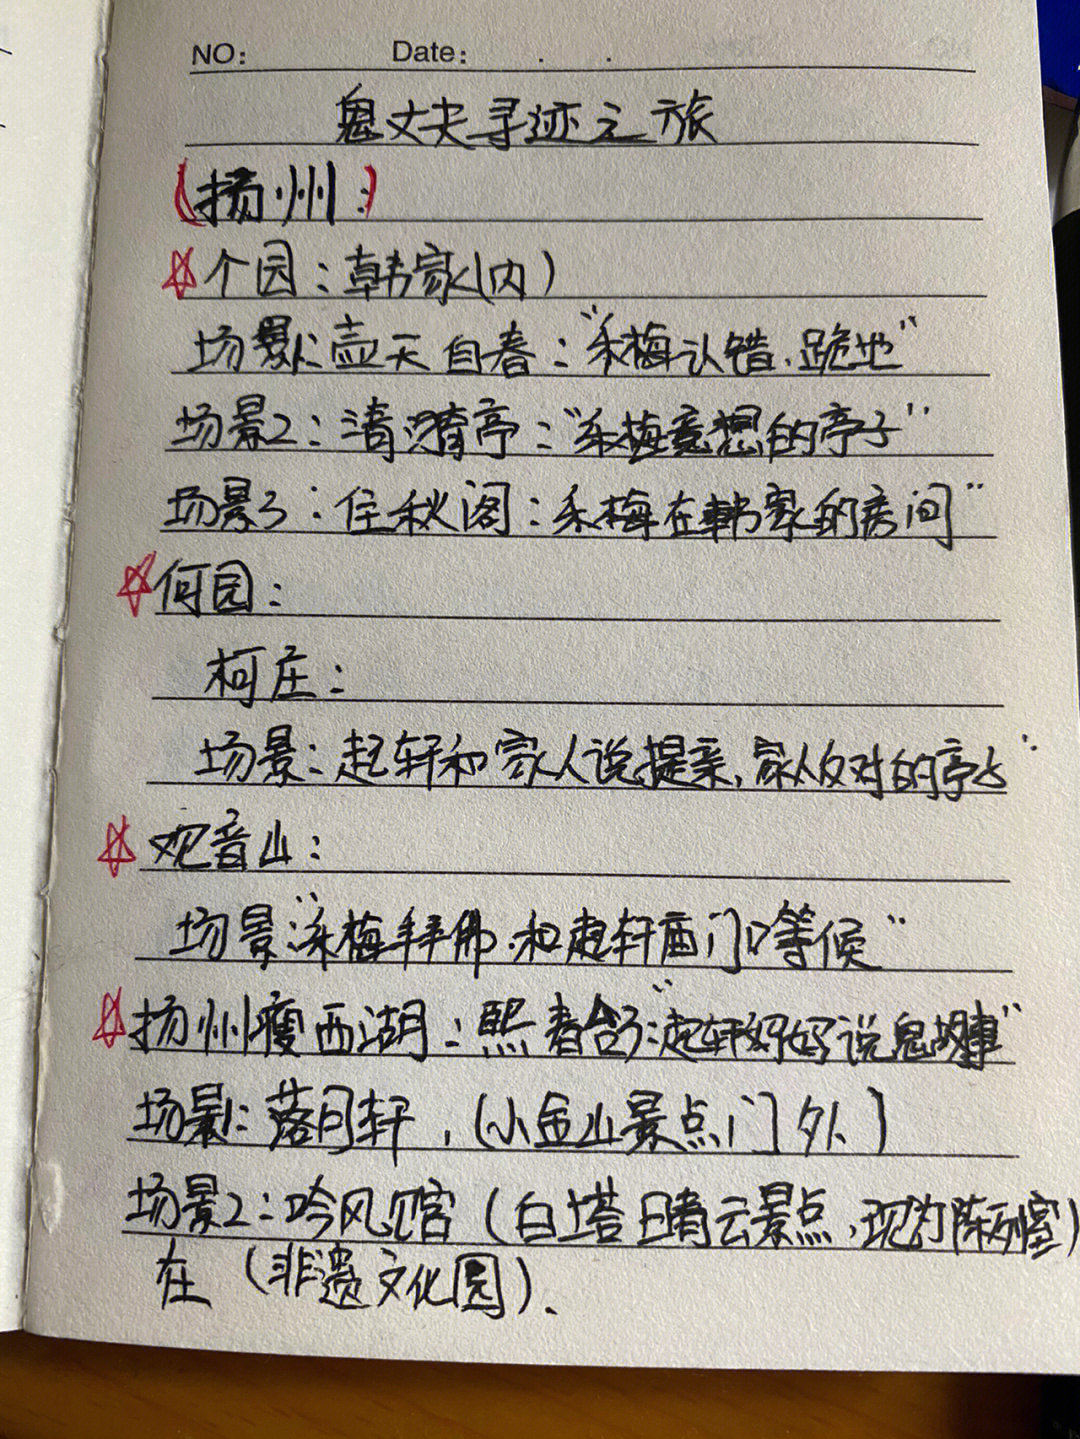 NO: Date: . .
鬼丈夫寻迹之旅
(扬州:)
☆个园:韩家(内)
场景1:壶天自春:“乐梅认错.跪地”
场景2:清漪亭:“乐梅意想的亭子”
场景3:住秋阁:乐梅在韩家的房间”
☆何园:
柯庄:
场景:起轩和家人说提亲,家人反对的亭子”
☆观音山:
场景:“乐梅拜佛.和起轩庙门口等候”
☆扬州瘦西湖:熙春台:“起轩奶奶说鬼故事”
场景1:落月轩,(小金山景点门外)
场景2:吟风馆(白塔晴云景点,现为陈列室)
在(非遗文化园).